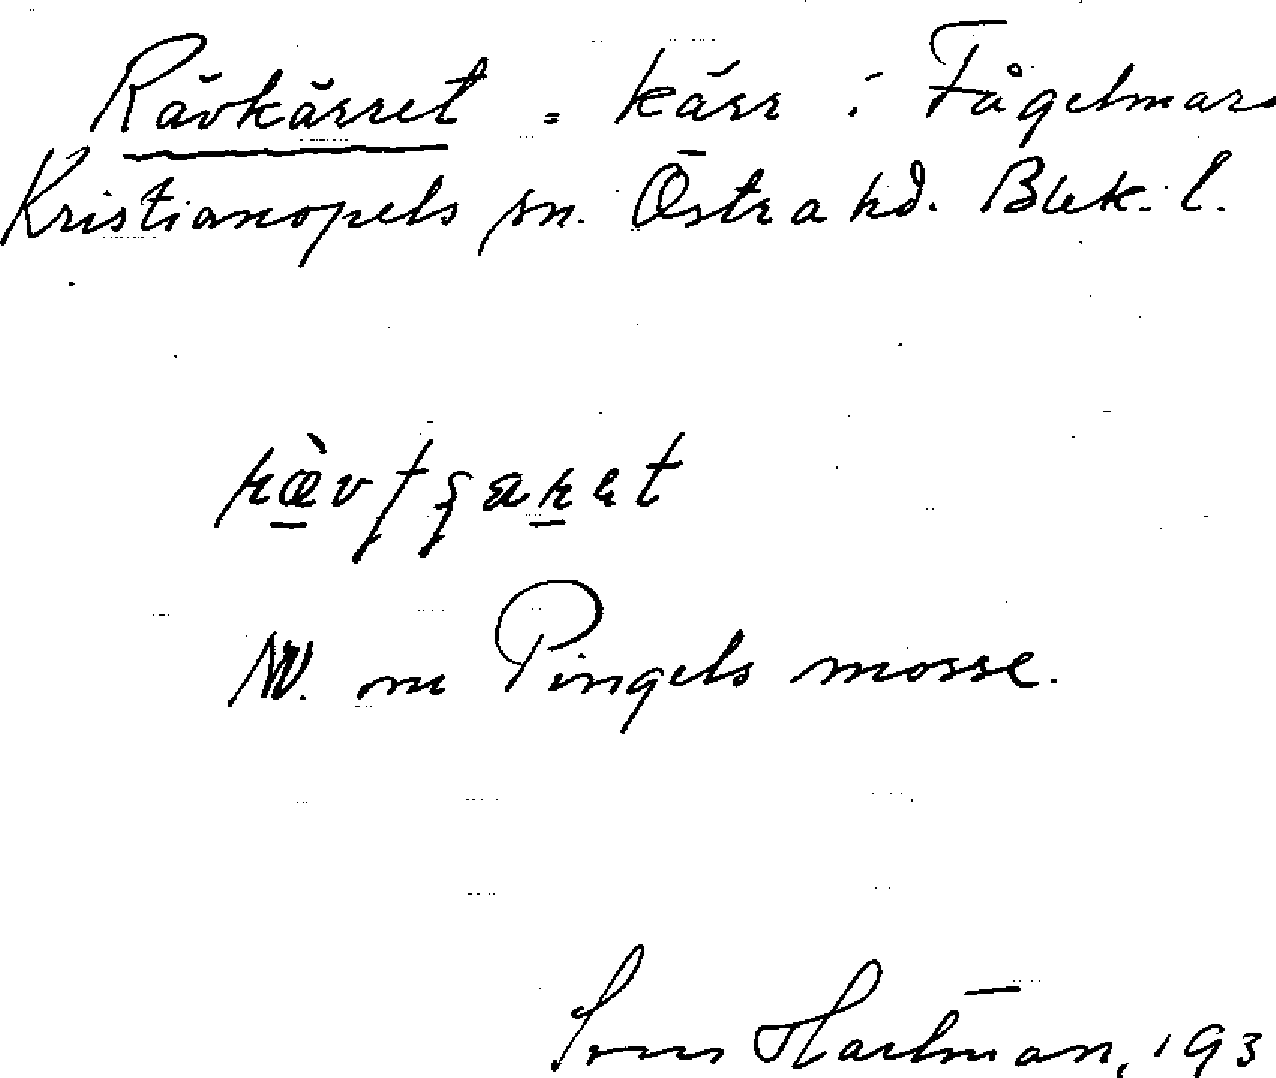 Rävkärret = kärr i Fågelmara
Kristianopels sn. Östra hd. Blek. l.
NV. om Pingels mosse.
Sven Hartman, 193